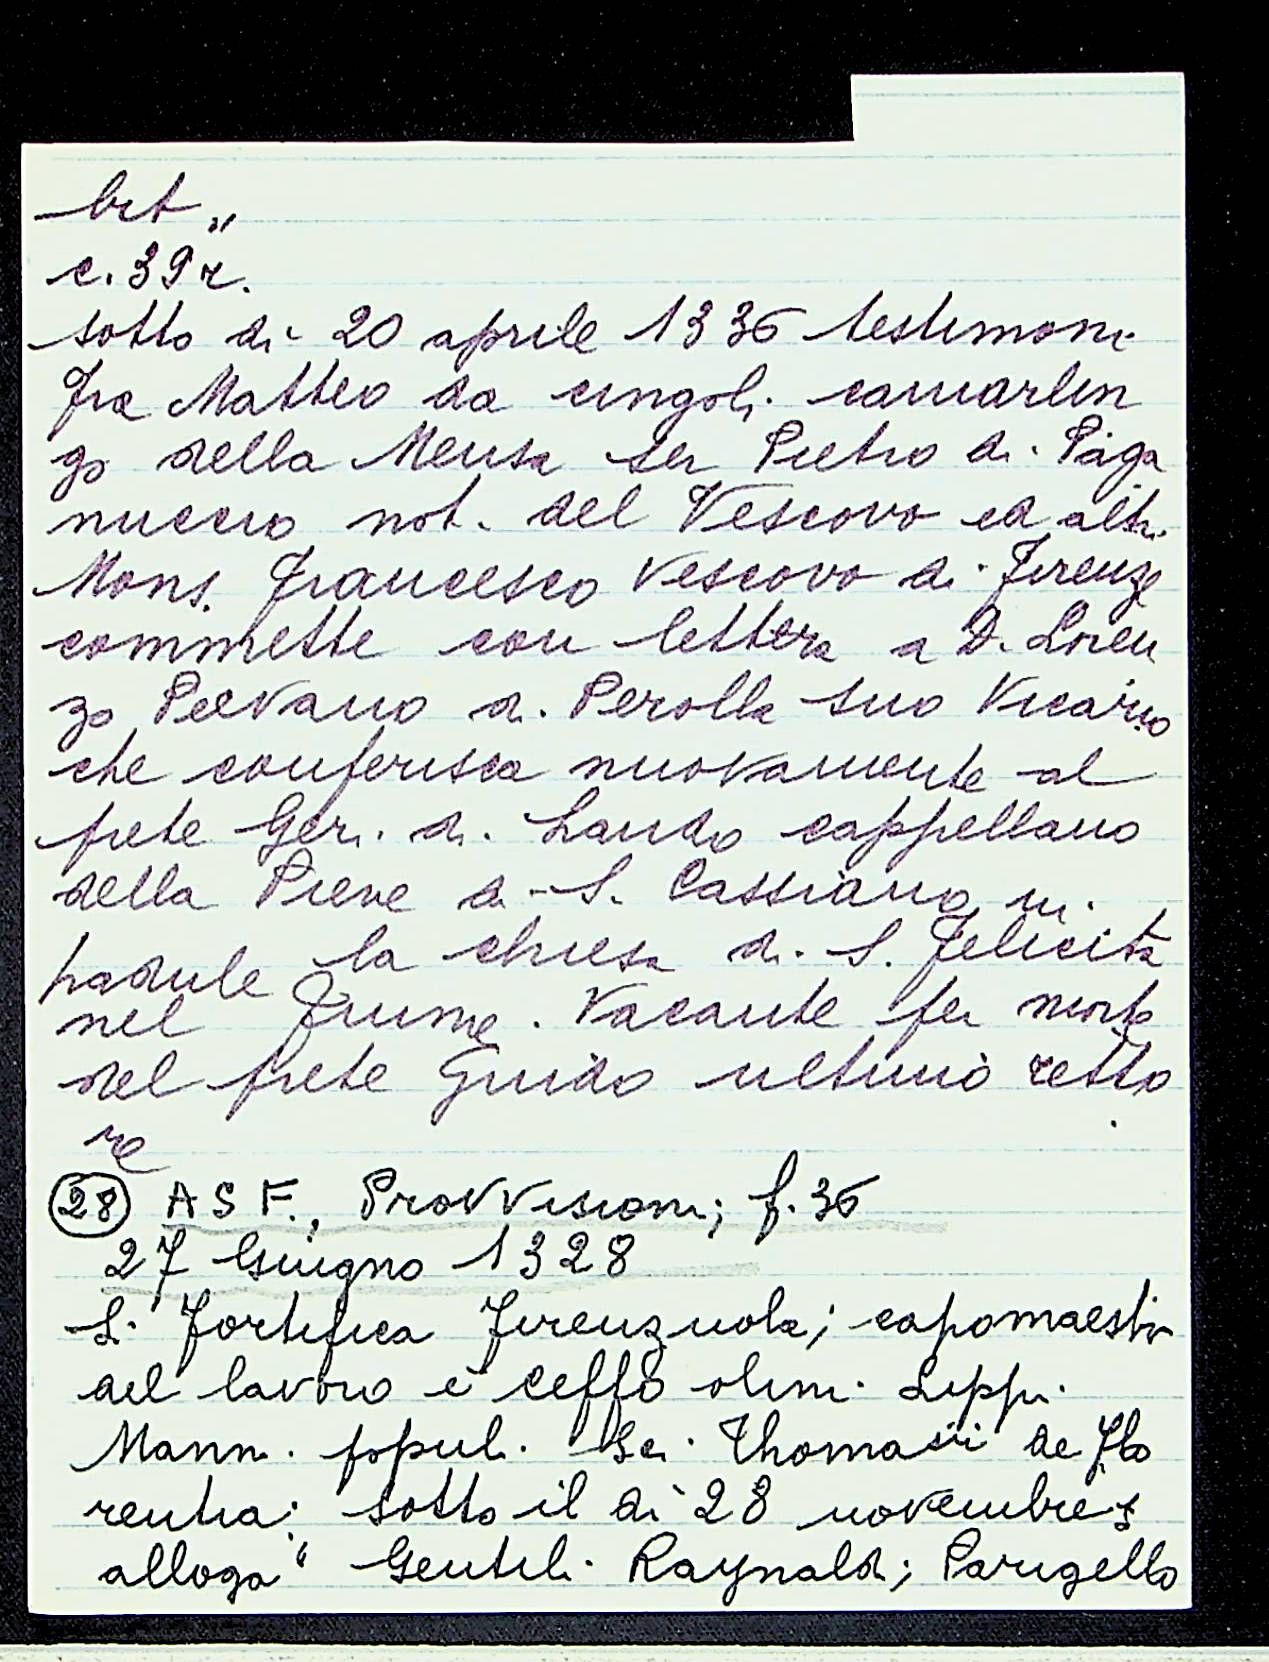 bit„
c. 39 r.
sotto dì 20 aprile 1336 testimoni
Fra Matteo da cingoli camarlin
go della Mensa ser Pietro di Paga
nuccio not. del Vescovo ed altri
Mons. Francesco Vescovo di Firenze
commette con lettera a D. Loren
zo Pievano di Perolla suo Vicario
che conferisca nuovamente al
prete Geri di Lando cappellano
della Pieve di S. Cassiano in
padule la chiesa di S. Felicita
nel Fiume. Vacante per morte
del prete Guido ultimo retto
re
28 ASF., Provvisioni; f. 36
27 Giugno 1328
Si fortifica Firenzuola; capomaestro
del lavoro è Ceffo olim Lippi
Manni popul. Sci. Thomasii de Flo
rentia: sotto il dì 28 novembre s
alloga “ Gentili Raynaldi; Parigello